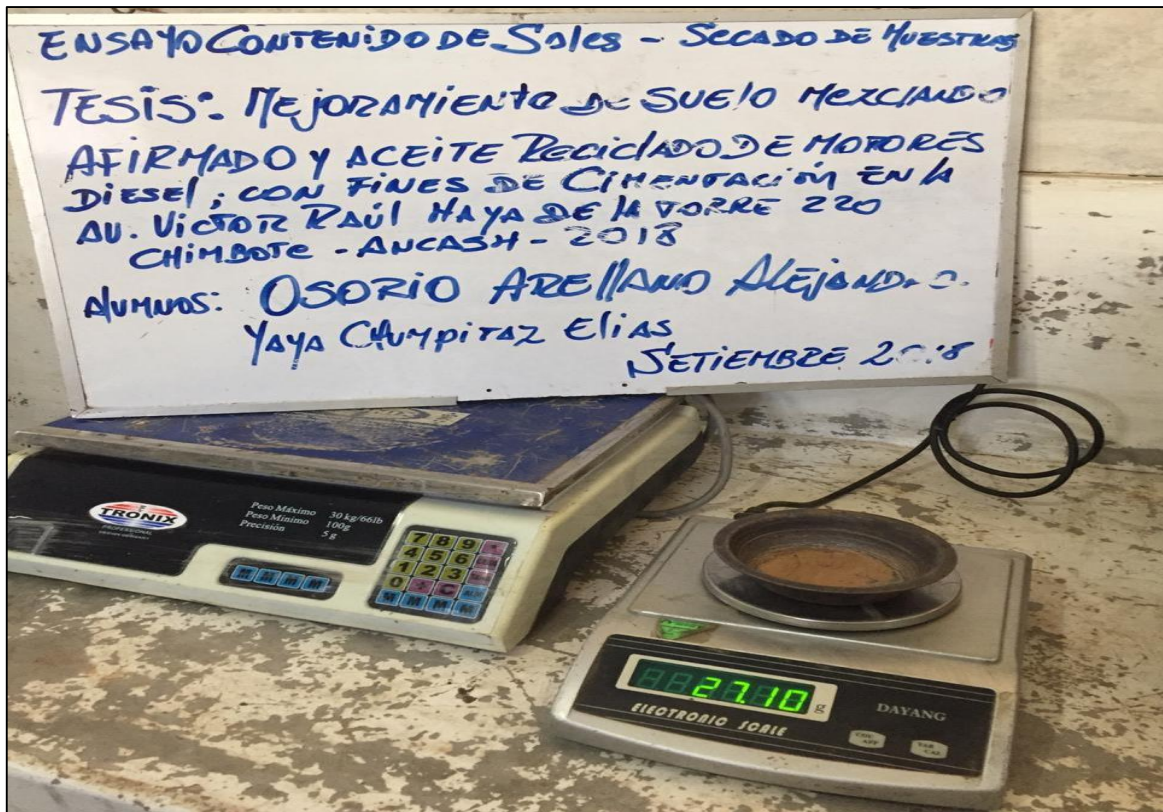 ENSAYO CONTENIDO DE SALES - SECADO DE MUESTRAS
TESIS: MEJORAMIENTO DE SUELO MEZCLANDO
AFIRMADO Y ACEITE RECICLADO DE MOTORES
DIESEL; CON FINES DE CIMENTACIÓN EN LA
AV. VICTOR RAÚL HAYA DE LA TORRE 220
CHIMBOTE - ANCASH - 2018
ALUMNOS: OSORIO ARELLANO ALEJANDRO.
YAYA CHUMPITAZ ELIAS
SETIEMBRE 2018
TRONIX
PROFESSIONAL
Peso Máximo 30 kg/66lb
Peso Mínimo 100g
Precisión 5 g
7 8 9
4 5 6
1 2 3
0 C
M M M
27.10 g
ELECTRONIC SCALE
DAYANG